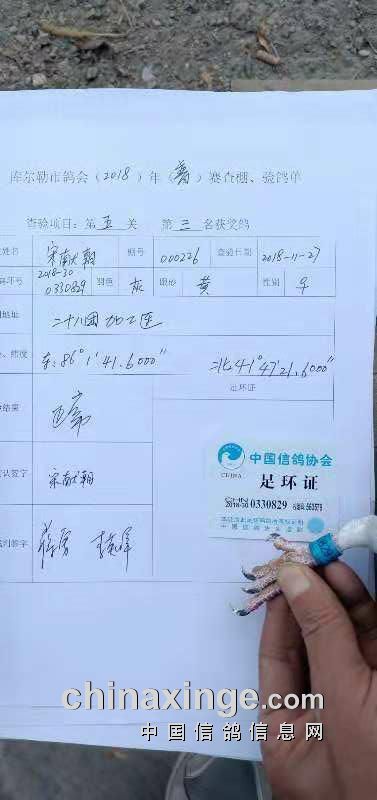 库尔勒市鸽会（2018）年（普）赛查棚、验鸽单
查验项目：第 五 关 第 三 名获奖鸽
姓名 宋献朝 棚号 000226 查验日期 2018-11-27
环号 2018-30 0330829 羽色 灰 眼砂 黄 性别
地址 二十八团加工连
、纬度 东：86°1′41.6000″ 北41°47′21.6000″
足环证
结果 正常
认签字 宋献朝
签字
中国信鸽协会
CHINA
足环证
2018-30 0330829
中国信鸽协会监制
chinaxinge.com
中国信鸽信息网